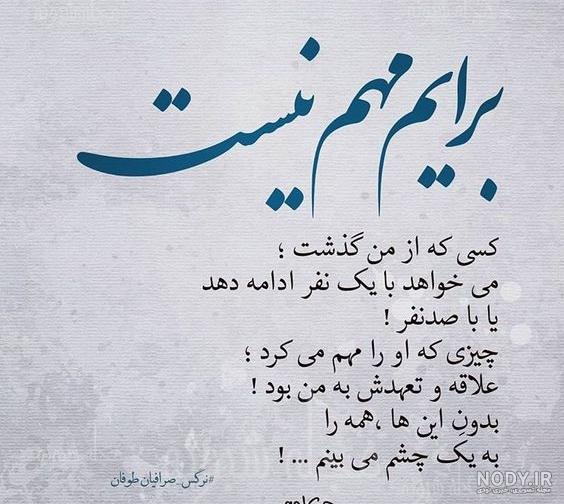 برایم مهم نیست
کسی که از من گذشت ؛
می خواهد با یک نفر ادامه دهد
یا با صدنفر !
چیزی که او را مهم می کرد ؛
علاقه و تعهدش به من بود !
بدونِ این ها ،همه را
به یک چشم می بینم ... !
#نرگس_صرافیان_طوفان
NODY.IR